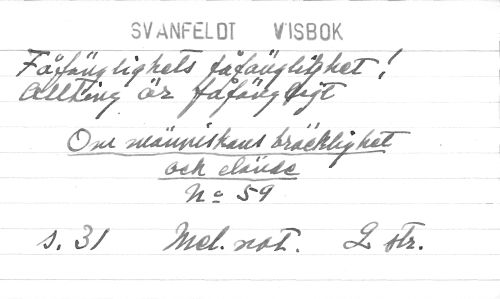 SVANFELDT VISBOK
Fåfänglighets fåfänglighet!
Allting är fåfängligt
Om människans bräcklighet
och elände
No 59
s. 31 Mel. not. 2 str.